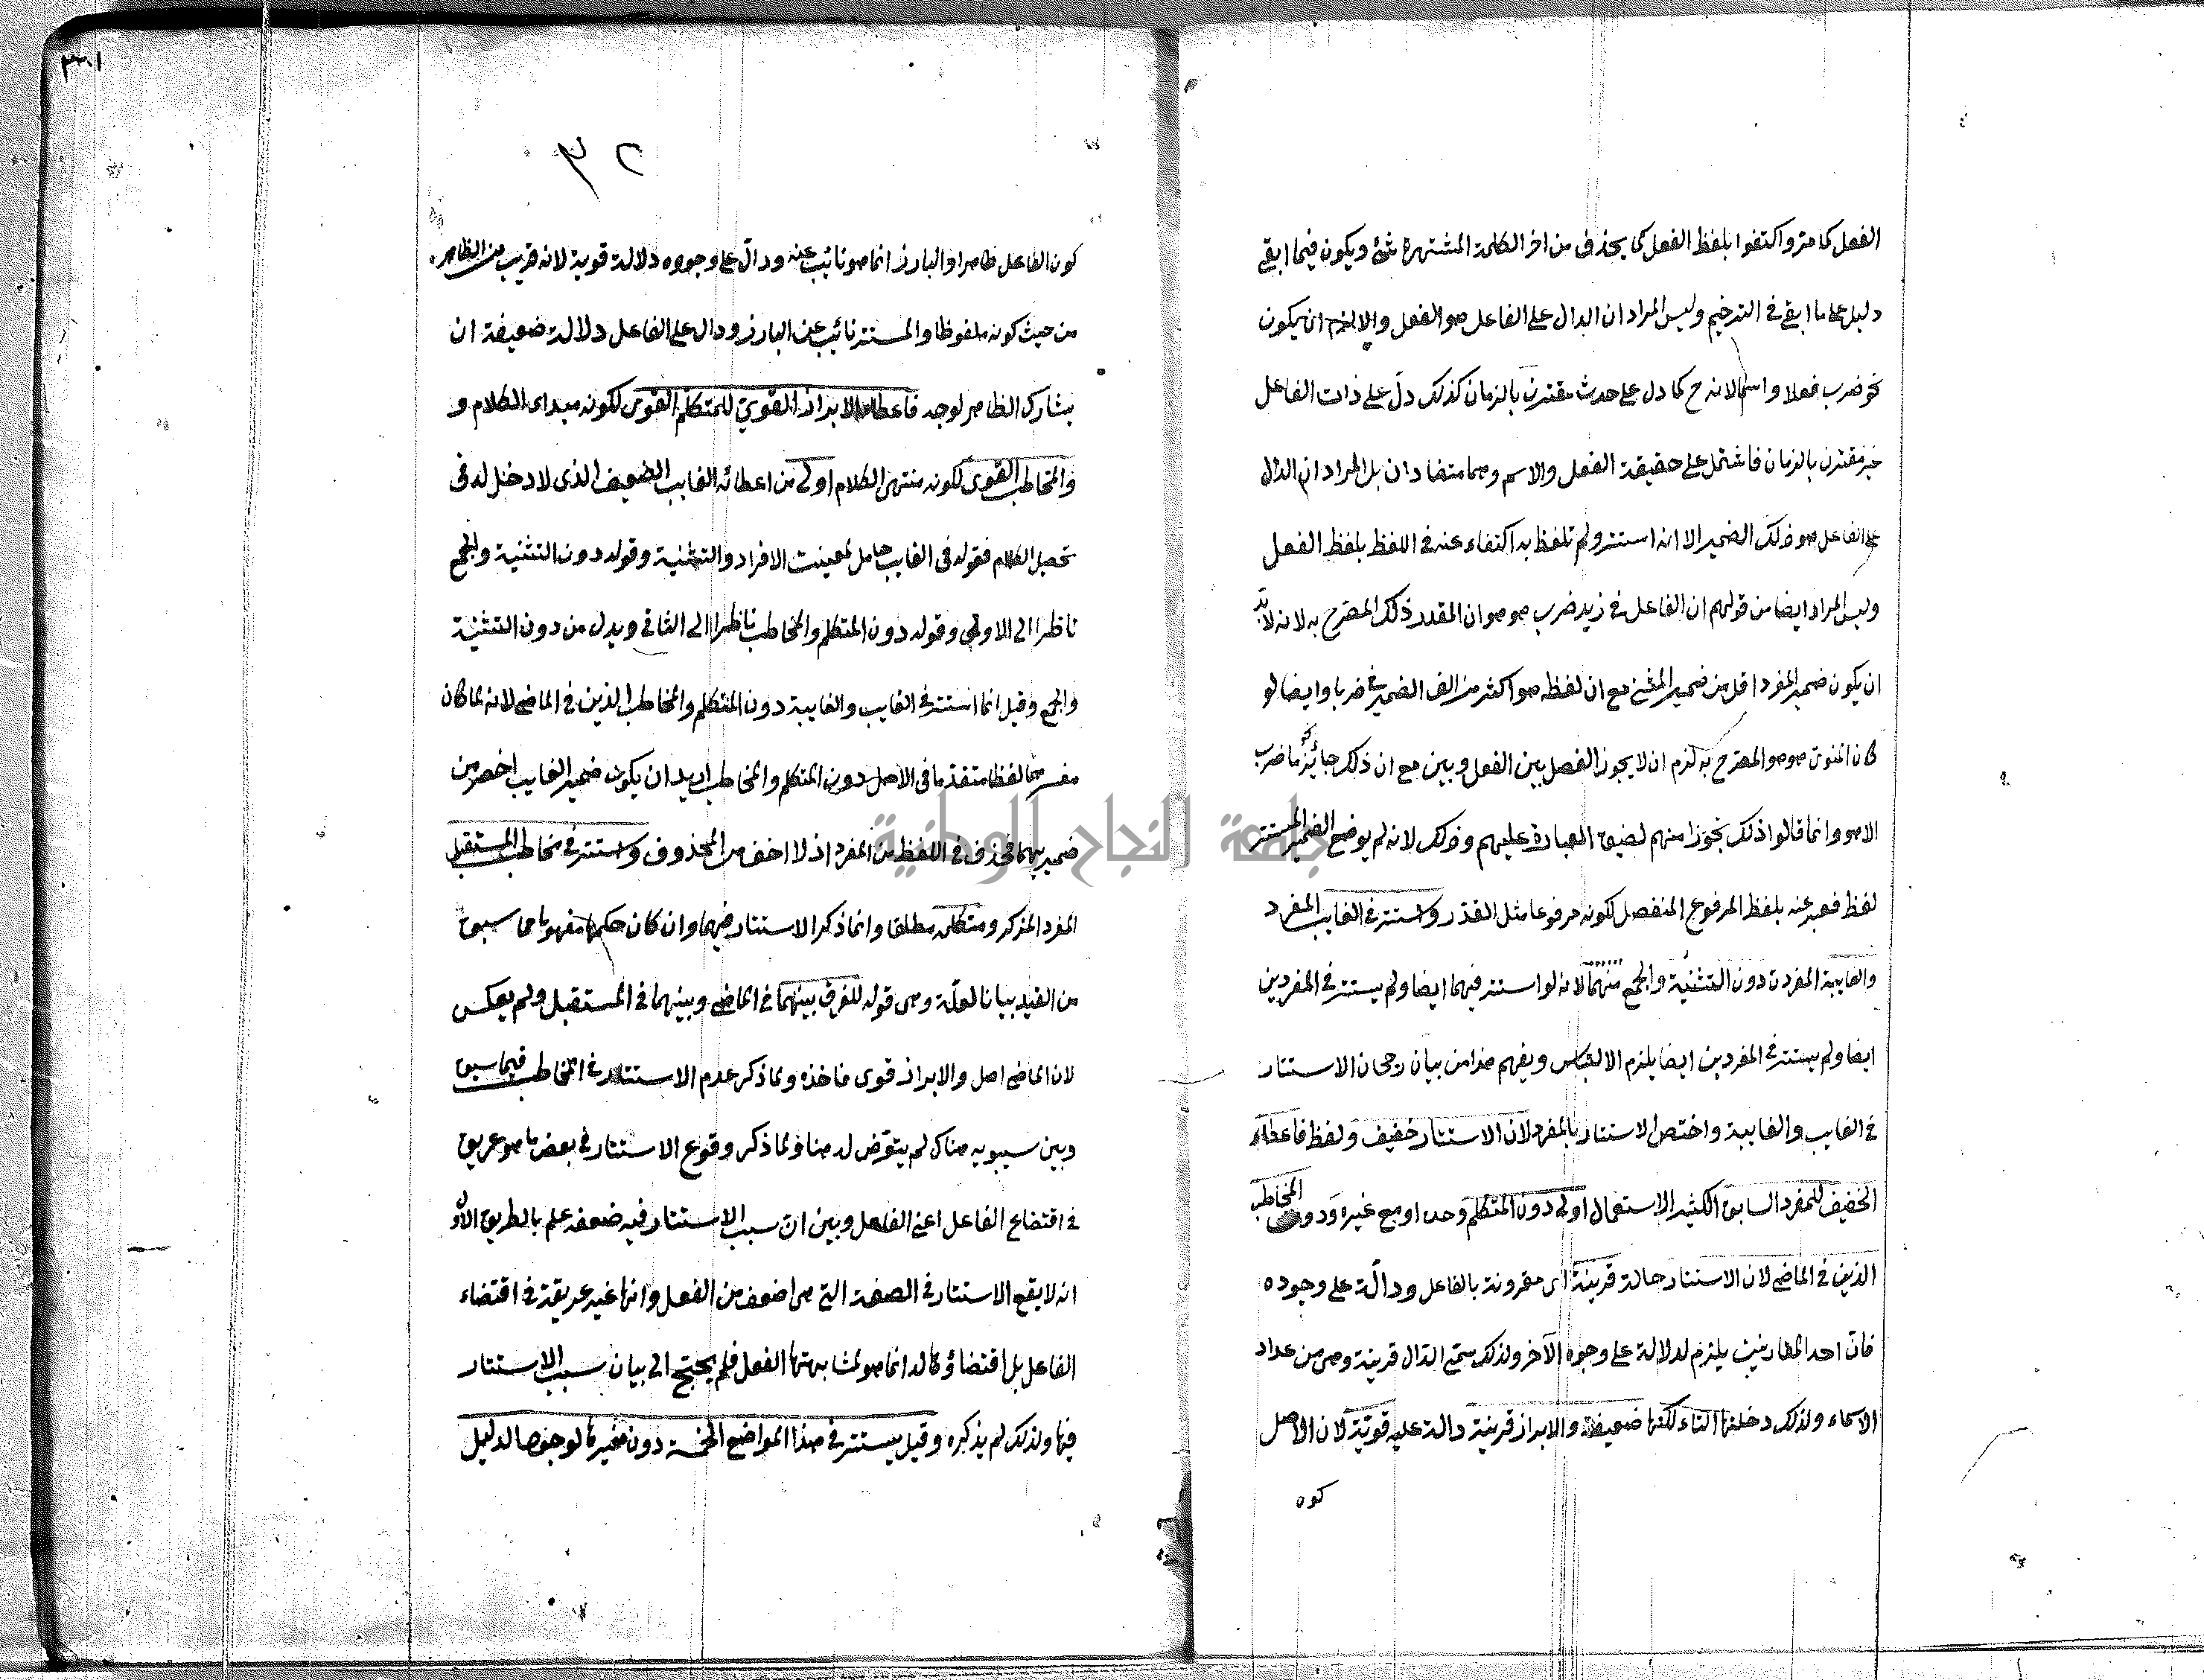 الفعل كما مر واكتفوا بلفظ الفعل كما يحذف من اخر الكلمة المشتهرة شئ ويكون فيما ابقى
دليل على ما ابقى فى الترخيم وليس المراد ان الدال على الفاعل هو الفعل والا يلزم ان يكون
نحو ضرب فعلا واسما لانه ح كما دل على حدث مقترن بالزمان كذلك دل على ذات الفاعل
غير مقترن بالزمان فاشتمل على حقيقة الفعل والاسم وهما متضادان بل المراد ان الدال
على الفاعل هو ذلك الضمير الا انه استتر ولم تلفظ به اكتفاء عنه فى اللفظ بلفظ الفعل
وليس المراد ايضا من قولهم ان الفاعل فى زيد ضرب هو هو ان المقدر ذلك المصرح به لانه لابد
ان يكون ضمير المفرد اقل من ضمير المثنى مع ان لفظه هو اكثر من الف الضمير فى ضربا وايضا لو
كان المنوى هو هو المصرح به لزم ان لا يجوز الفصل بين الفعل وبين مع ان ذلك جائز نحو ما ضرب
الا هو وانما قالوا ذلك تجوزا منهم لضيق العبارة عليهم وذلك لانه لم يوضع الضمير المستتر
لفظ فعبر عنه بلفظ المرفوع المنفصل لكونه مرفوعا مثل القدر واستتر فى الغايب المفرد
والغايبة المفردة دون التثنية والجمع منهما لانه لو استتر فيهما ايضا ولم يستتر فى المفردين
ايضا ولم يستتر فى المفردين ايضا يلزم الالتباس ويفهم هذا من بيان رجحان الاستتار
فى الغايب والغايبة واختص الاستتار بالمفرد لان الاستتار خفيف ولفظ فاعطاء
الخفيف للمفرد السابق الكثير الاستعمال اولى دون المتكلم وحده او مع غيره ودون المخاطب
الذين فى الماضى لان الاستتار حالة قرينة اى مقرونة بالفاعل ودالة على وجوده
فان احد المقارنين يلزم له دلالة على وجوه الآخر ولذلك سمى الدال قرينة وهى من عداد
الاسماء ولذلك دخلتها التاء لكنها ضعيفة والابراز قرينة دالة عليه قوية لان الاصل
كون
٣٢
٣٠١
كون الفاعل ظاهرا والبارز انما هو نائب عنه ودال على وجوده دلالة قوية لانه قريب من الظاهر
من حيث كونه ملفوظا والمستتر نائب عن البارز ودال على الفاعل دلالة ضعيفة ان
يشارك الظاهر لوجه فاعطاء الابراز القوى للمتكلم القوى لكونه مبداى الكلام و
والمخاطب القوى لكونه منتهى الكلام اولى من اعطائه الغايب الضعيف الذى لا دخل له فى
تحصيل الكلام فقوله فى الغايب حامل لمعينت الافراد والتثنية وقوله دون التثنية والجمع
ناظرا الى الاولى وقوله دون المتكلم والمخاطب ناظرا الى الثانى وبدل من دون التثنية
والجمع وقيل انما استتر فى الغايب والغايبة دون المتكلم والمخاطب الذين فى الماضى لانه لما كان
مفسرهما لفظا متقدما فى الاصل دون المتكلم والمخاطب اريد ان يكون ضمير الغايب اخصر من
ضميريهما فحذف فى اللفظ من المفرد اذ لا اخف من المحذوف واستتر فى مخاطب المستقبل
المفرد المذكر ومتكلمه مطلقا وانما ذكر الاستتار فيهما وان كان حكمها مفهوما مما سبق
من القيد بيانا لعلة وهى قوله للفرق بينهما فى الماضى وبينهما فى المستقبل ولم يعكس
لان الماضى اصل والابراز قوى فاخذه ولما ذكر عدم الاستتار فى المخاطب فيما سبق
وبين سيبويه هناك لم يتعرض له هنا ولما ذكر وقوع الاستتار فى بعض ما هو عريق
فى اقتضاء الفاعل اعنى الفعل وبين ان سبب الاستتار فيه ضعفه علم بالطريق الاولى
انه لا يقع الاستتار فى الصفة التى هى اضعف من الفعل وانها غير عريقة فى اقتضاء
الفاعل بل اقتضاؤها له انما هو لمشابهتها الفعل فلم يحتج الى بيان سبب الاستتار
فيها ولذلك لم يذكره وقيل يستتر فى هذا المواضع الخمسة دون غيرها لوجود الدليل
جامعة النجاح الوطنية